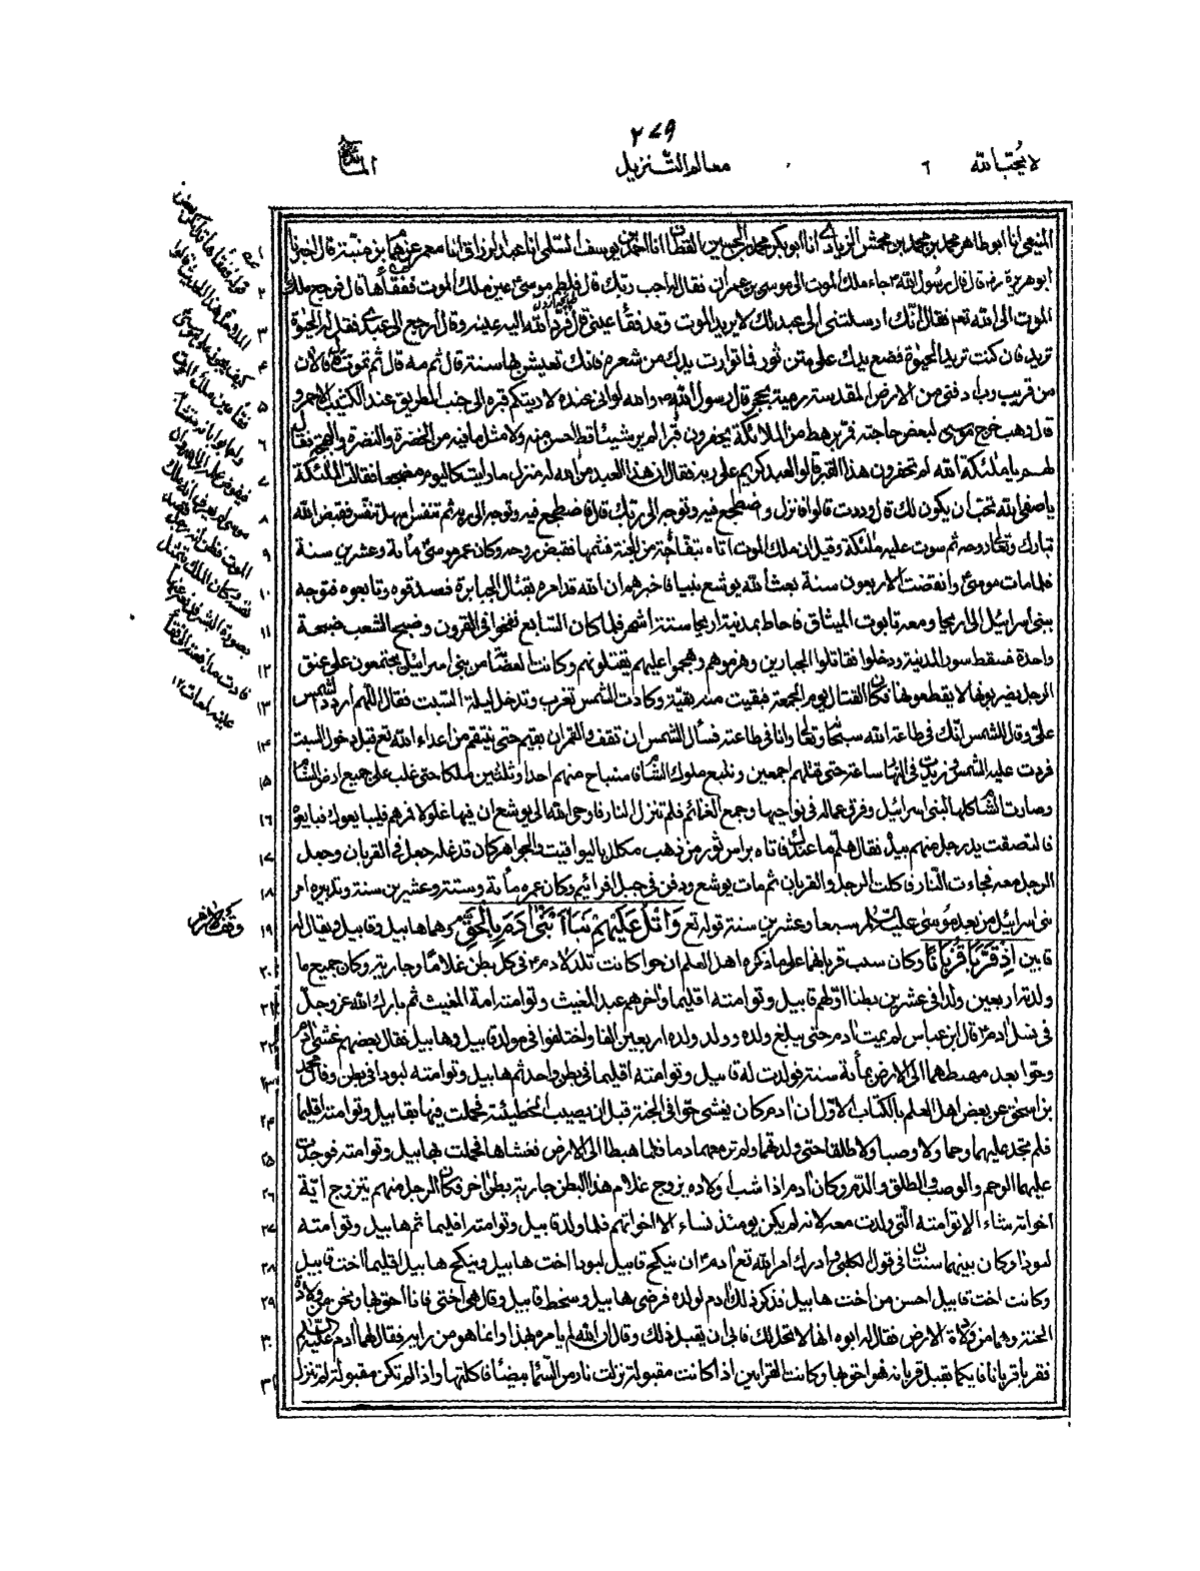 ٢٧٩
لا يحب الله ٦ معالم التنزيل المائدة
المنيعي انا ابو طاهر محمد بن محمد بن محمش الزيادي انا ابو بكر محمد بن الحسين القطان انا احمد بن يوسف السلمي انا عبد الرزاق انا معمر عن همام بن منبه قال اخبرنا ١
ابو هريرة رض قال قال رسول الله ص جاء ملك الموت الى موسى بن عمران فقال له اجب ربك قال فلطم موسى عين ملك الموت ففقأها قال فرجع ملك ٢
الموت الى الله تعم فقال انك ارسلتني الى عبد لك لا يريد الموت وقد فقأ عيني قال فرد الله اليه عينه وقال ارجع الى عبدي فقل له الحيوة ٣
تريد فان كنت تريد الحيوة فضع يدك على متن ثور فما توارت يدك من شعره فانك تعيش بها سنة قال ثم مه قال ثم تموت قال فالان ٤
من قريب رب ادفني من الارض المقدسة رمية بحجر قال رسول الله ص والله لو اني عنده لاريتكم قبره الى جنب الطريق عند الكثيب الاحمر و ٥
قال وهب خرج موسى لبعض حاجته فمر برهط من الملائكة يحفرون قبرا لم ير شيئا قط احسن منه ولا مثل ما فيه من الخضرة والنضرة والبهجة فقال ٦
لهم يا ملئكة الله لم تحفرون هذا القبر قالوا لعبد كريم على ربه فقال ان هذا العبد من الله له منزل ما رايت كاليوم مضجعا فقالت الملئكة ٧
يا صفي الله تحب ان يكون لك قال وددت قالوا فانزل واضطجع فيه وتوجه الى ربك قال فاضطجع فيه وتوجه الى ربه ثم تنفس اسهل تنفس فقبض الله ٨
تبارك وتعالى روحه ثم سوت عليه ملئكة وقيل ان ملك الموت اتاه بتفاحة من الجنة فشمها فقبض روحه وكان عمر موسى مائة وعشرين سنة ٩
فلما مات موسى وانقضت الاربعون سنة بعث الله يوشع نبيا فاخبرهم ان الله قد امره بقتال الجبابرة فصدقوه وتابعوه فتوجه ١٠
ببني اسرائيل الى اريحا ومعه تابوت الميثاق فاحاط بمدينة اريحا ستة اشهر فلما كان السابع نفخوا في القرون وضج الشعب ضجة ١١
واحدة فسقط سور المدينة ودخلوا فقاتلوا الجبارين وهزموهم وهجموا عليهم يقتلونهم وكانت العصابة من بني اسرائيل يجتمعون على عنق ١٢
الرجل يضربونها لا يقطعونها فكان القتال يوم الجمعة فبقيت منهم بقية وكادت الشمس تغرب وتدخل ليلة السبت فقال اللهم اردد الشمس ١٣
علي وقال للشمس انك في طاعة الله سبحانه وتعالى وانا في طاعته فسأل الشمس ان تقف والقمر ان يقيم حتى ينتقم من اعداء الله تعم قبل دخول السبت ١٤
فردت عليه الشمس وزيدت في النهار ساعة حتى قتلهم اجمعين وتتبع ملوك الشام فاستباح منهم احدا وثلثين ملكا حتى غلب على جميع ارض الشام ١٥
وصارت الشام كلها لبني اسرائيل وفرق عماله في نواحيها وجمع الغنائم فلم تنزل النار فاوحى الله الى يوشع ان فيها غلولا فمرهم فليبايعوك فبايعوه ١٦
فالتصقت يد رجل منهم بيده فقال هلم ما عندك فاتاه براس ثور من ذهب مكلل باليواقيت والجواهر كان قد غله فجعله في القربان وجعل ١٧
الرجل معه فجاءت النار فاكلت الرجل والقربان ثم مات يوشع ودفن في جبل افرائيم وكان عمره مائة وستة وعشرين سنة وتدبيره امر ١٨
بني اسرائيل من بعد موسى عليه السلام سبعا وعشرين سنة قوله تع وَاتْلُ عَلَيْهِمْ نَبَأَ ابْنَيْ آدَمَ بِالْحَقِّ وهما هابيل وقابيل ويقال له ١٩
قابين إِذْ قَرَّبَا قُرْبَانًا وكان سبب قربانهما على ما ذكره اهل العلم ان حوا كانت تلد لادم في كل بطن غلاما وجارية وكان جميع ما ٢٠
ولدته اربعين ولدا في عشرين بطنا اولهم قابيل وتوامته اقليما واخرهم عبد المغيث وتوامته امة المغيث ثم بارك الله عز وجل ٢١
في نسل ادم قال ابن عباس لم يمت ادم حتى يبلغ ولده وولد ولده اربعين الفا واختلفوا في مولد قابيل وهابيل فقال بعضهم غشي ادم ٢٢
وحوا بعد مهبطهما الى الارض بمائة سنة فولدت له قابيل وتوامته اقليما في بطن واحد ثم هابيل وتوامته لبودا في بطن وقال محمد ٢٣
بن اسحق عن بعض اهل العلم بالكتاب الاول ان ادم كان يغشى حوا في الجنة قبل ان يصيب الخطيئة فحملت فيها بقابيل وتوامته اقليما ٢٤
فلم تجد عليهما وحما ولا وصبا ولا طلقا حتى ولدتهما ولم تر معهما دما فلما هبطا الى الارض تغشاها فحملت بهابيل وتوامته فوجدت ٢٥
عليهما الوحم والوصب والطلق والدم وكان ادم اذا شب اولاده يزوج غلام هذا البطن جارية بطن اخر فكان الرجل منهم يتزوج اية ٢٦
اخواته شاء الا توامته التي ولدت معه لانه لم يكن يومئذ نساء الا اخواتهم فلما ولد قابيل وتوامته اقليما ثم هابيل وتوامته ٢٧
لبودا وكان بينهما سنتان في قول الكلبي وادركا امر الله تع ادم ان ينكح قابيل لبودا اخت هابيل وينكح هابيل اقليما اخت قابيل ٢٨
وكانت اخت قابيل احسن من اخت هابيل فذكر ذلك ادم لولده فرضي هابيل وسخط قابيل وقال هي اختي فانا احق بها ونحن من ولادة ٢٩
الجنة وهما من ولادة الارض فقال له ابوه انها لا تحل لك فابى ان يقبل ذلك وقال ان الله لم يامره بهذا وانما هو من رايه فقال لهما ادم عليه السلم ٣٠
فقربا قربانا فايكما يقبل قربانه فهو احق بها وكانت القرابين اذا كانت مقبولة نزلت نار من السماء بيضاء فاكلتها واذا لم تكن مقبولة لم تنزل ٣١
قوله ففقأها
كيف يجوز على موسى
فقأ عين ملك الموت